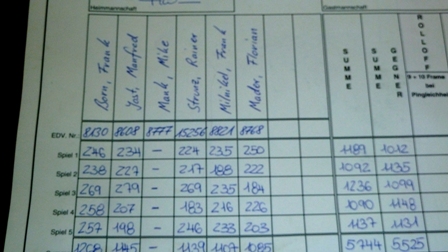 Heimmannschaft
Gastmannschaft
Born, Frank
Yost, Manfred
Mank, Mike
Strunz, Rainer
Milnikel, Frank
Mader, Florian
SUMME
SUMME GEGNER
ROLLOFF
9 + 10 Frame bei Pingleichheit
EDV. Nr. 8130 8608 8777 15256 8821 8768
Spiel 1 246 234 – 224 235 250 1189 1012
Spiel 2 238 227 – 217 188 222 1092 1135
Spiel 3 269 279 – 269 235 184 1236 1099
Spiel 4 258 207 – 183 216 226 1090 1148
Spiel 5 257 198 – 246 233 203 1137 1131
1268 1145 – 1139 1107 1085 5744 5525